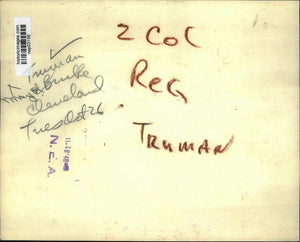 2 Col
Reg
TRUMAN
Truman
Burke
Cleveland
Tues Oct 26
N.E.A.